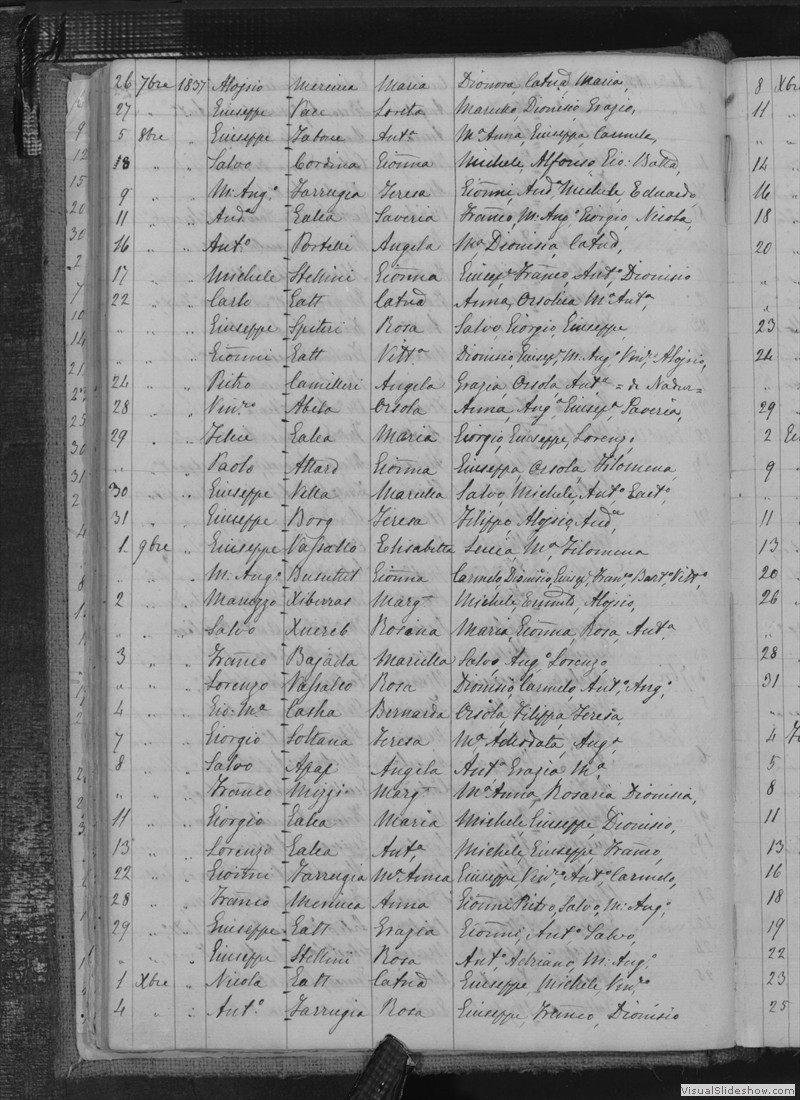 26 7bre 1837 Aloisio Mercieca Maria Dionora, Catnā, Maria,
27 " " Giuseppe Vase Loreta Maruzzo, Dionisio, Grazio,
5 8bre " Giuseppe Tabone Antª Mª Anna, Giuseppa, Carmela,
18 " " Salvo Cordina Gionna Michele, Alfonso, Gio: Batta,
9 " " M: Angº Farrugia Teresa Gionni, Andª, Michele, Eduardo,
11 " " Andª Galea Saveria Franco, M: Angº, Giorgio, Nicola,
16 " " Antº Portelli Angela Mª Dionisia, Catnā,
17 " " Michele Stellini Gionna Giusepe, Franco, Antº, Dionisio
22 " " Carlo Gatt Catnā Anna, Orsolica, Mª Antª,
" " Giuseppe Spiteri Rosa Salvo, Giorgio, Giuseppe,
" " Gionni Gatt Vittª Dionisio, Giusepe, M: Angº, Vinzº, Aloisio,
24 " " Pietro Camilleri Angela Grazia, Orsola, Antª = de Nadur =
28 " " Vinzº Abela Orsola Anna, Angª, Giusepª, Saveria,
29 " " Felice Galea Maria Giorgio, Giuseppe, Lorenzo,
" " Paolo Attard Gionna Giuseppa, Orsola, Filomena,
30 " " Giuseppe Vella Maruzza Salvo, Michele, Antº, Gaetº,
31 " " Giuseppe Borg Teresa Filippo, Aloisio, Andª
1 9bre " Giuseppe Vassallo Elisabetta Lucia, Mª Filomena
" " M: Angº Busuttil Gionna Carmelo, Dionisio, Giusepe, Franco, Bartº, Vittº,
2 " " Maruzzo Xiberras Margta Michele, Aloisio,
" " " Salvo Xuereb Rosaria Maria, Gionna, Rosa, Antª
3 " " Franco Bajada Maruzza Salvo, Angº, Lorenzo,
" " Lorenzo Vassallo Rosa Dionisio, Carmelo, Antº, Angº,
4 " " Gio: Mª Casha Bernarda Orsola, Filippa, Teresa,
7 " " Giorgio Soltana Teresa Mª Adeodata, Angª,
8 " " Salvo Apap Angela Antª, Grazia, Mª,
" " Franco Mizzi Margta Mª Anna, Rosaria, Dionisia,
11 " " Giorgio Galea Maria Michele, Giuseppe, Dionisio,
13 " " Lorenzo Galea Antª Michele, Giuseppe, Franco,
22 " " Gionni Farrugia Mª Anna Giuseppe, Vinzº, Antº, Carmelo,
28 " " Franco Menica Anna Gionni, Pietro, Salvo, M: Angº,
29 " " Giuseppe Gatt Grazia Gionni, Antº, Salvo,
" " Giuseppe Stellini Rosa Antº, Adriano, M: Angº,
1 Xbre " Nicola Gatt Catnā Giuseppe, Michele, Vinzº
4 " " Antº Farrugia Rosa Giuseppe, Franco, Dionisio
8 Xbre
11
14
16
18
20
23
24
29
2
9
11
13
20
26
28
31
4
5
8
11
13
16
18
19
22
23
25
VisualSlideshow.com